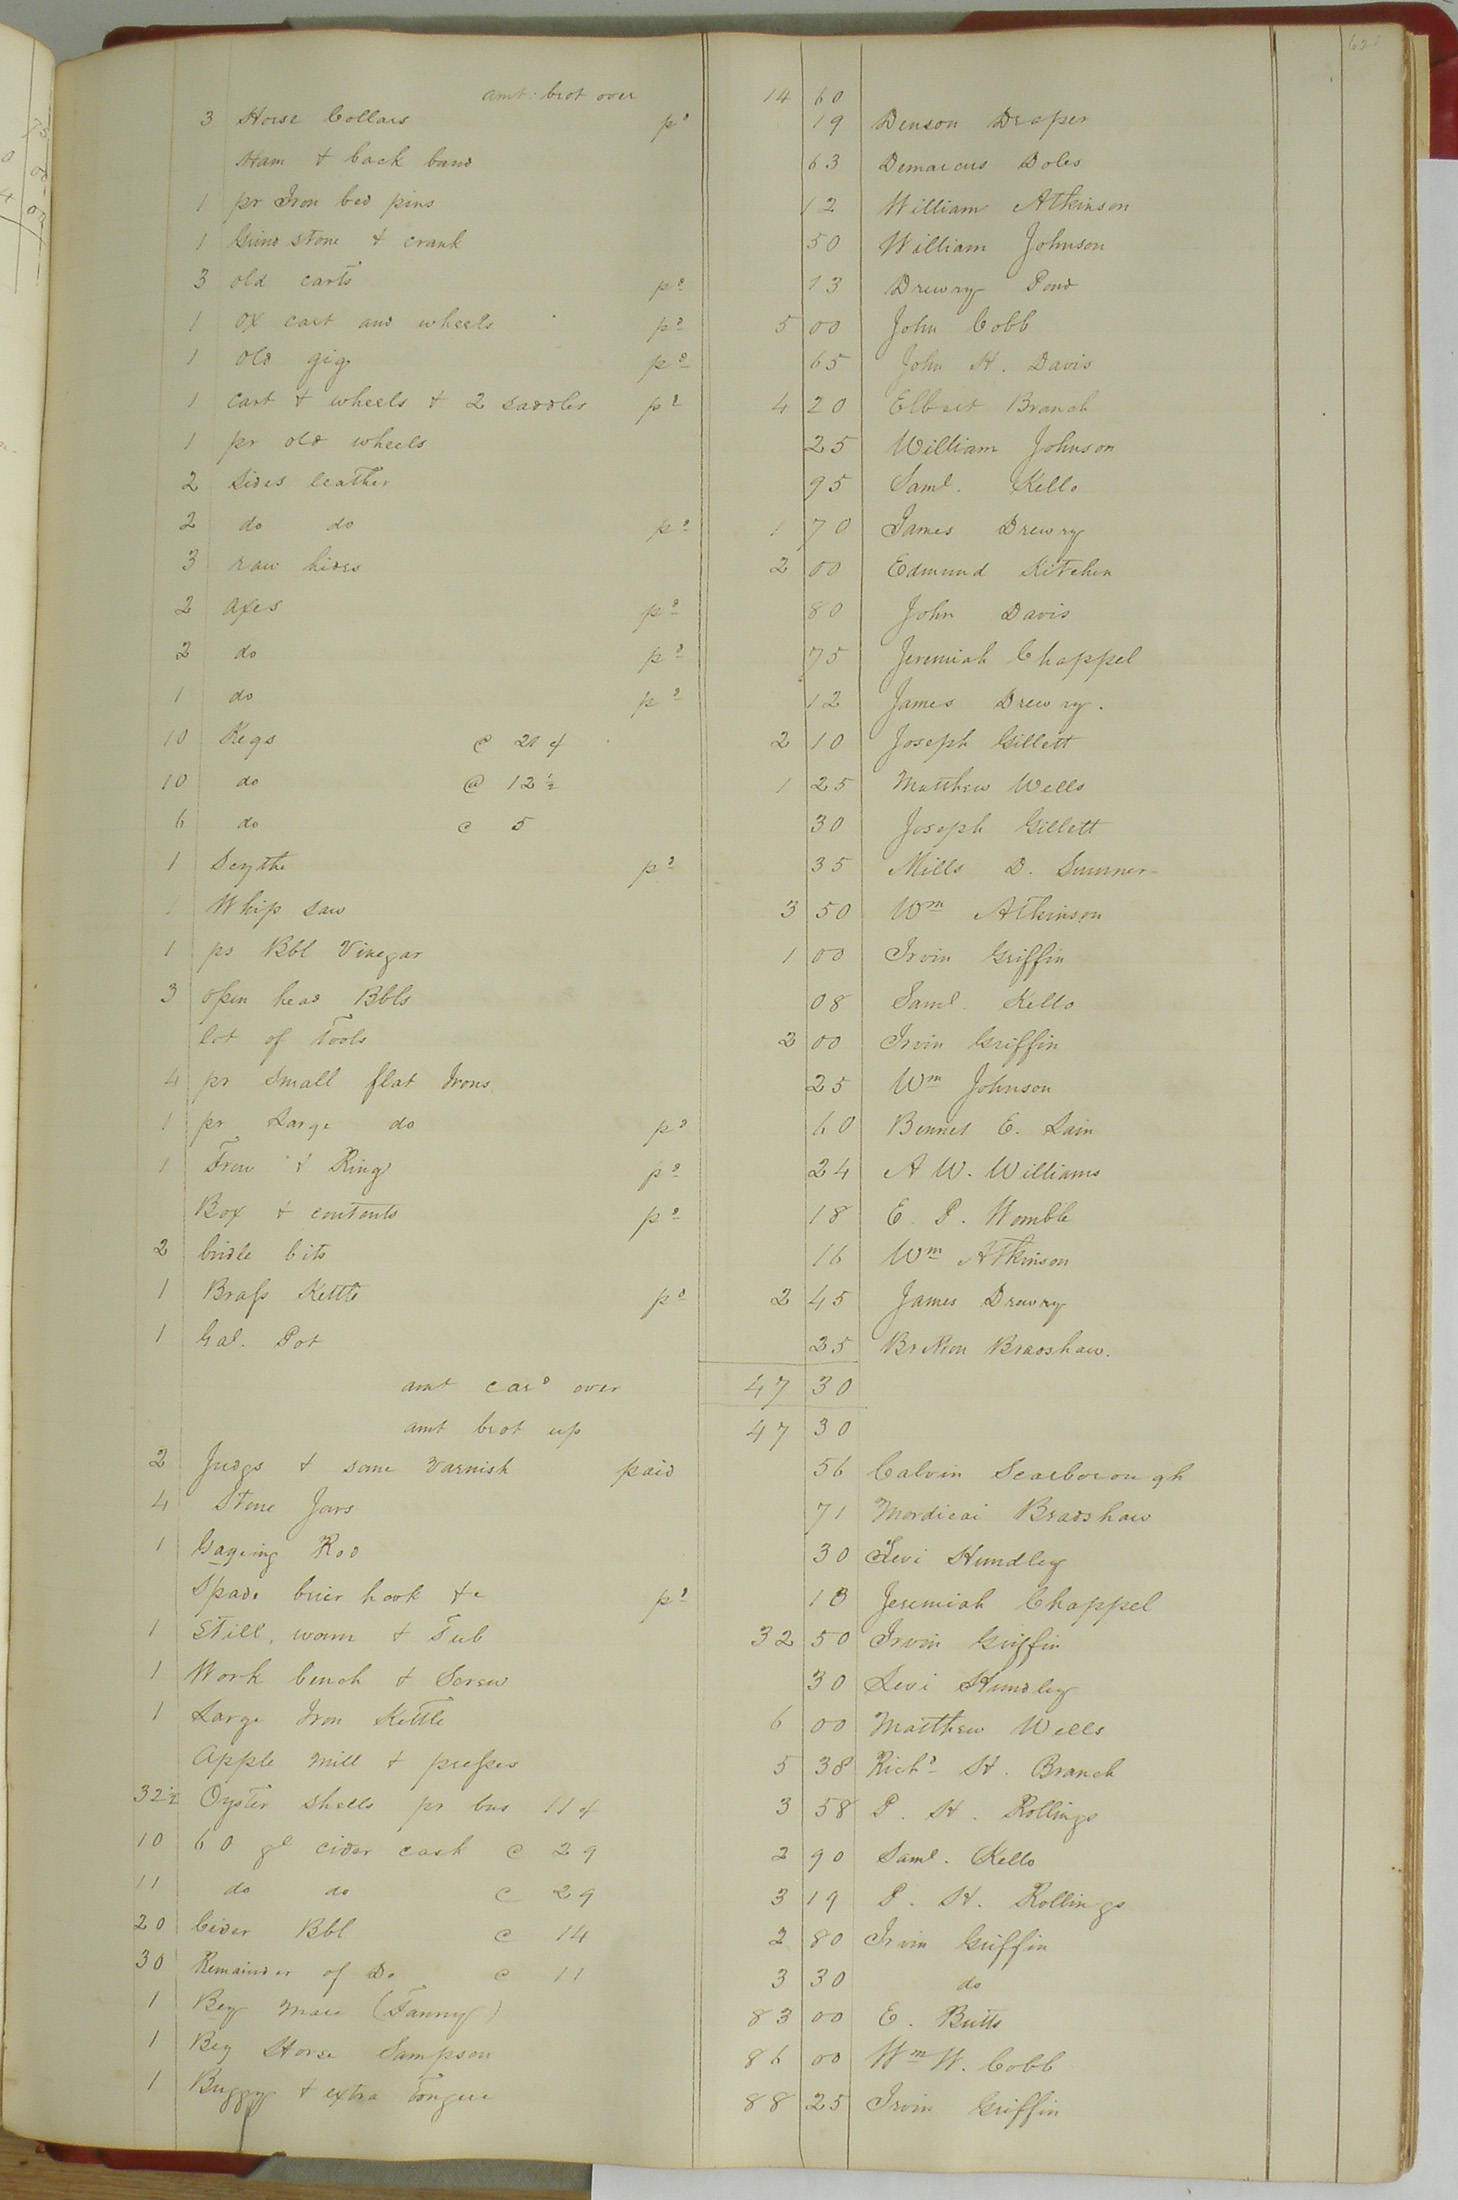 amt: brot over 14 60
3 Horse Collars pd 19 Denson Draper
Ham & back band 63 Demarcus Doles
1 pr Iron bed pins 12 William Atkinson
1 Grind stone & crank 50 William Johnson
3 old carts pd 13 Drewry Pond
1 ox cart and wheels pd 5 00 John Cobb
1 old gig pd 65 John H. Davis
1 cart & wheels & 2 saddles pd 4 20 Elbert Branch
1 pr old wheels 25 William Johnson
2 sides leather 95 Saml. Kello
2 do do pd 1 70 James Drewry
3 raw hides 2 00 Edmund Kitchen
2 axes pd 80 John Davis
2 do pd 75 Jeremiah Chappel
1 do pd 12 James Drewry.
10 Kegs @ 21 ¢ 2 10 Joseph Gillett
10 do @ 12 ½ 1 25 Matthew Wells
6 do @ 5 30 Joseph Gillett
1 Scythe pd 35 Mills D. Sumner
1 Whip saw 3 50 Wm Atkinson
1 ps Bbl Vinegar 1 00 Irvin Griffin
3 open head Bbls 08 Saml. Kello
lot of Tools 2 00 Irvin Griffin
4 pr small flat Irons 25 Wm Johnson
1 pr Large do pd 60 Bennet E. Lain
1 Frow & Ring pd 24 A W. Williams
Box & contents pd 18 E. P. Womble
2 bridle bits 16 Wm Atkinson
1 Brass Kettle pd 2 45 James Drewry
1 Gal. Pot 25 Britton Bradshaw.
amt card over 47 30
amt brot up 47 30
2 Judgs & some varnish paid 56 Calvin Scarborough
4 Stone Jars 71 Mordicai Bradshaw
1 Gageing Rod 30 Levi Hundley
Spade brier hook &c pd 13 Jeremiah Chappel
1 Still, worm & Tub 32 50 Irvin Griffin
1 Work bench & Screw 30 Levi Hundley
1 Large Iron Kettle 6 00 Matthew Wells
Apple mill & presses 5 38 Richd H. Branch
32½ Oyster shells pr bus 11 ¢ 3 58 P. H. Rollings
10 60 gl cider cask @ 29 2 90 Saml. Kello
11 do do @ 29 3 19 P. H. Rollings
20 Cider Bbl @ 14 2 80 Irvin Griffin
30 Remainder of Do @ 11 3 30 do
1 Bey mare (Fanny) 83 00 E. Butts
1 Bey Horse Sampson 86 00 Wm W. Cobb
1 Buggy & extra Tongue 88 25 Irvin Griffin